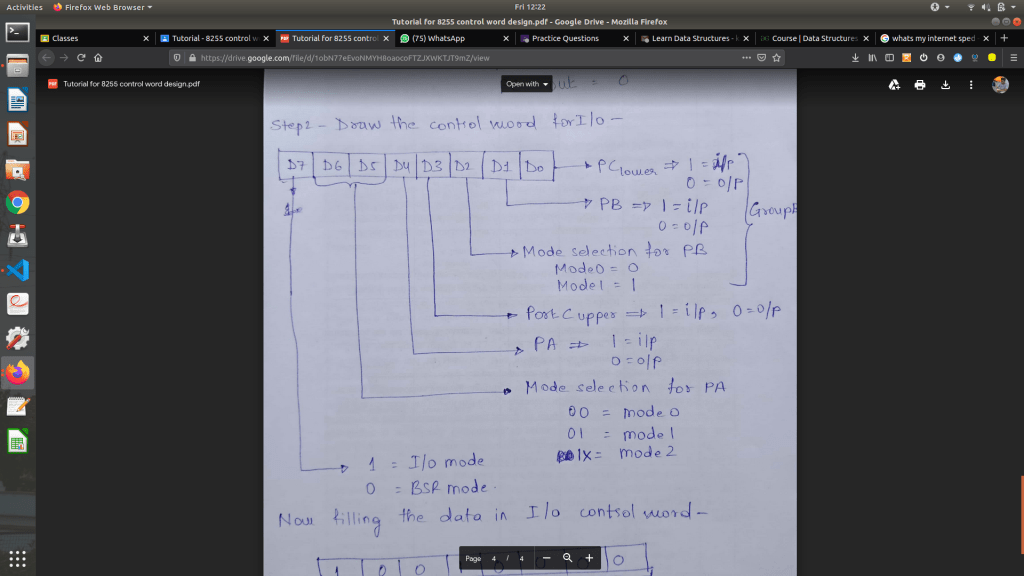 Activities
Firefox Web Browser
Fri 12:22
Tutorial for 8255 control word design.pdf - Google Drive - Mozilla Firefox
Classes
Tutorial - 8255 control w
Tutorial for 8255 control
(75) WhatsApp
Practice Questions
Learn Data Structures -
Course | Data Structures
whats my internet sped
https://drive.google.com/file/d/1obN77eEvoNMYH8oaocoFTZJXWKTJT9mZ/view
PDF Tutorial for 8255 control word design.pdf
Open with
out = 0
Step2 - Draw the control word for I/o -
D7 D6 D5 D4 D3 D2 D1 D0
PC lower => 1 = i/p
0 = o/p
PB => 1 = i/p
0 = o/p
Group
Mode selection for PB
Mode0 = 0
Mode1 = 1
Port C upper => 1 = i/p, 0 = o/p
PA => 1 = i/p
0 = o/p
Mode selection for PA
00 = mode 0
01 = mode 1
1X = mode 2
1 = I/o mode
0 = BSR mode.
Now filling the data in I/o control word -
1 0 0
0
Page 4 / 4